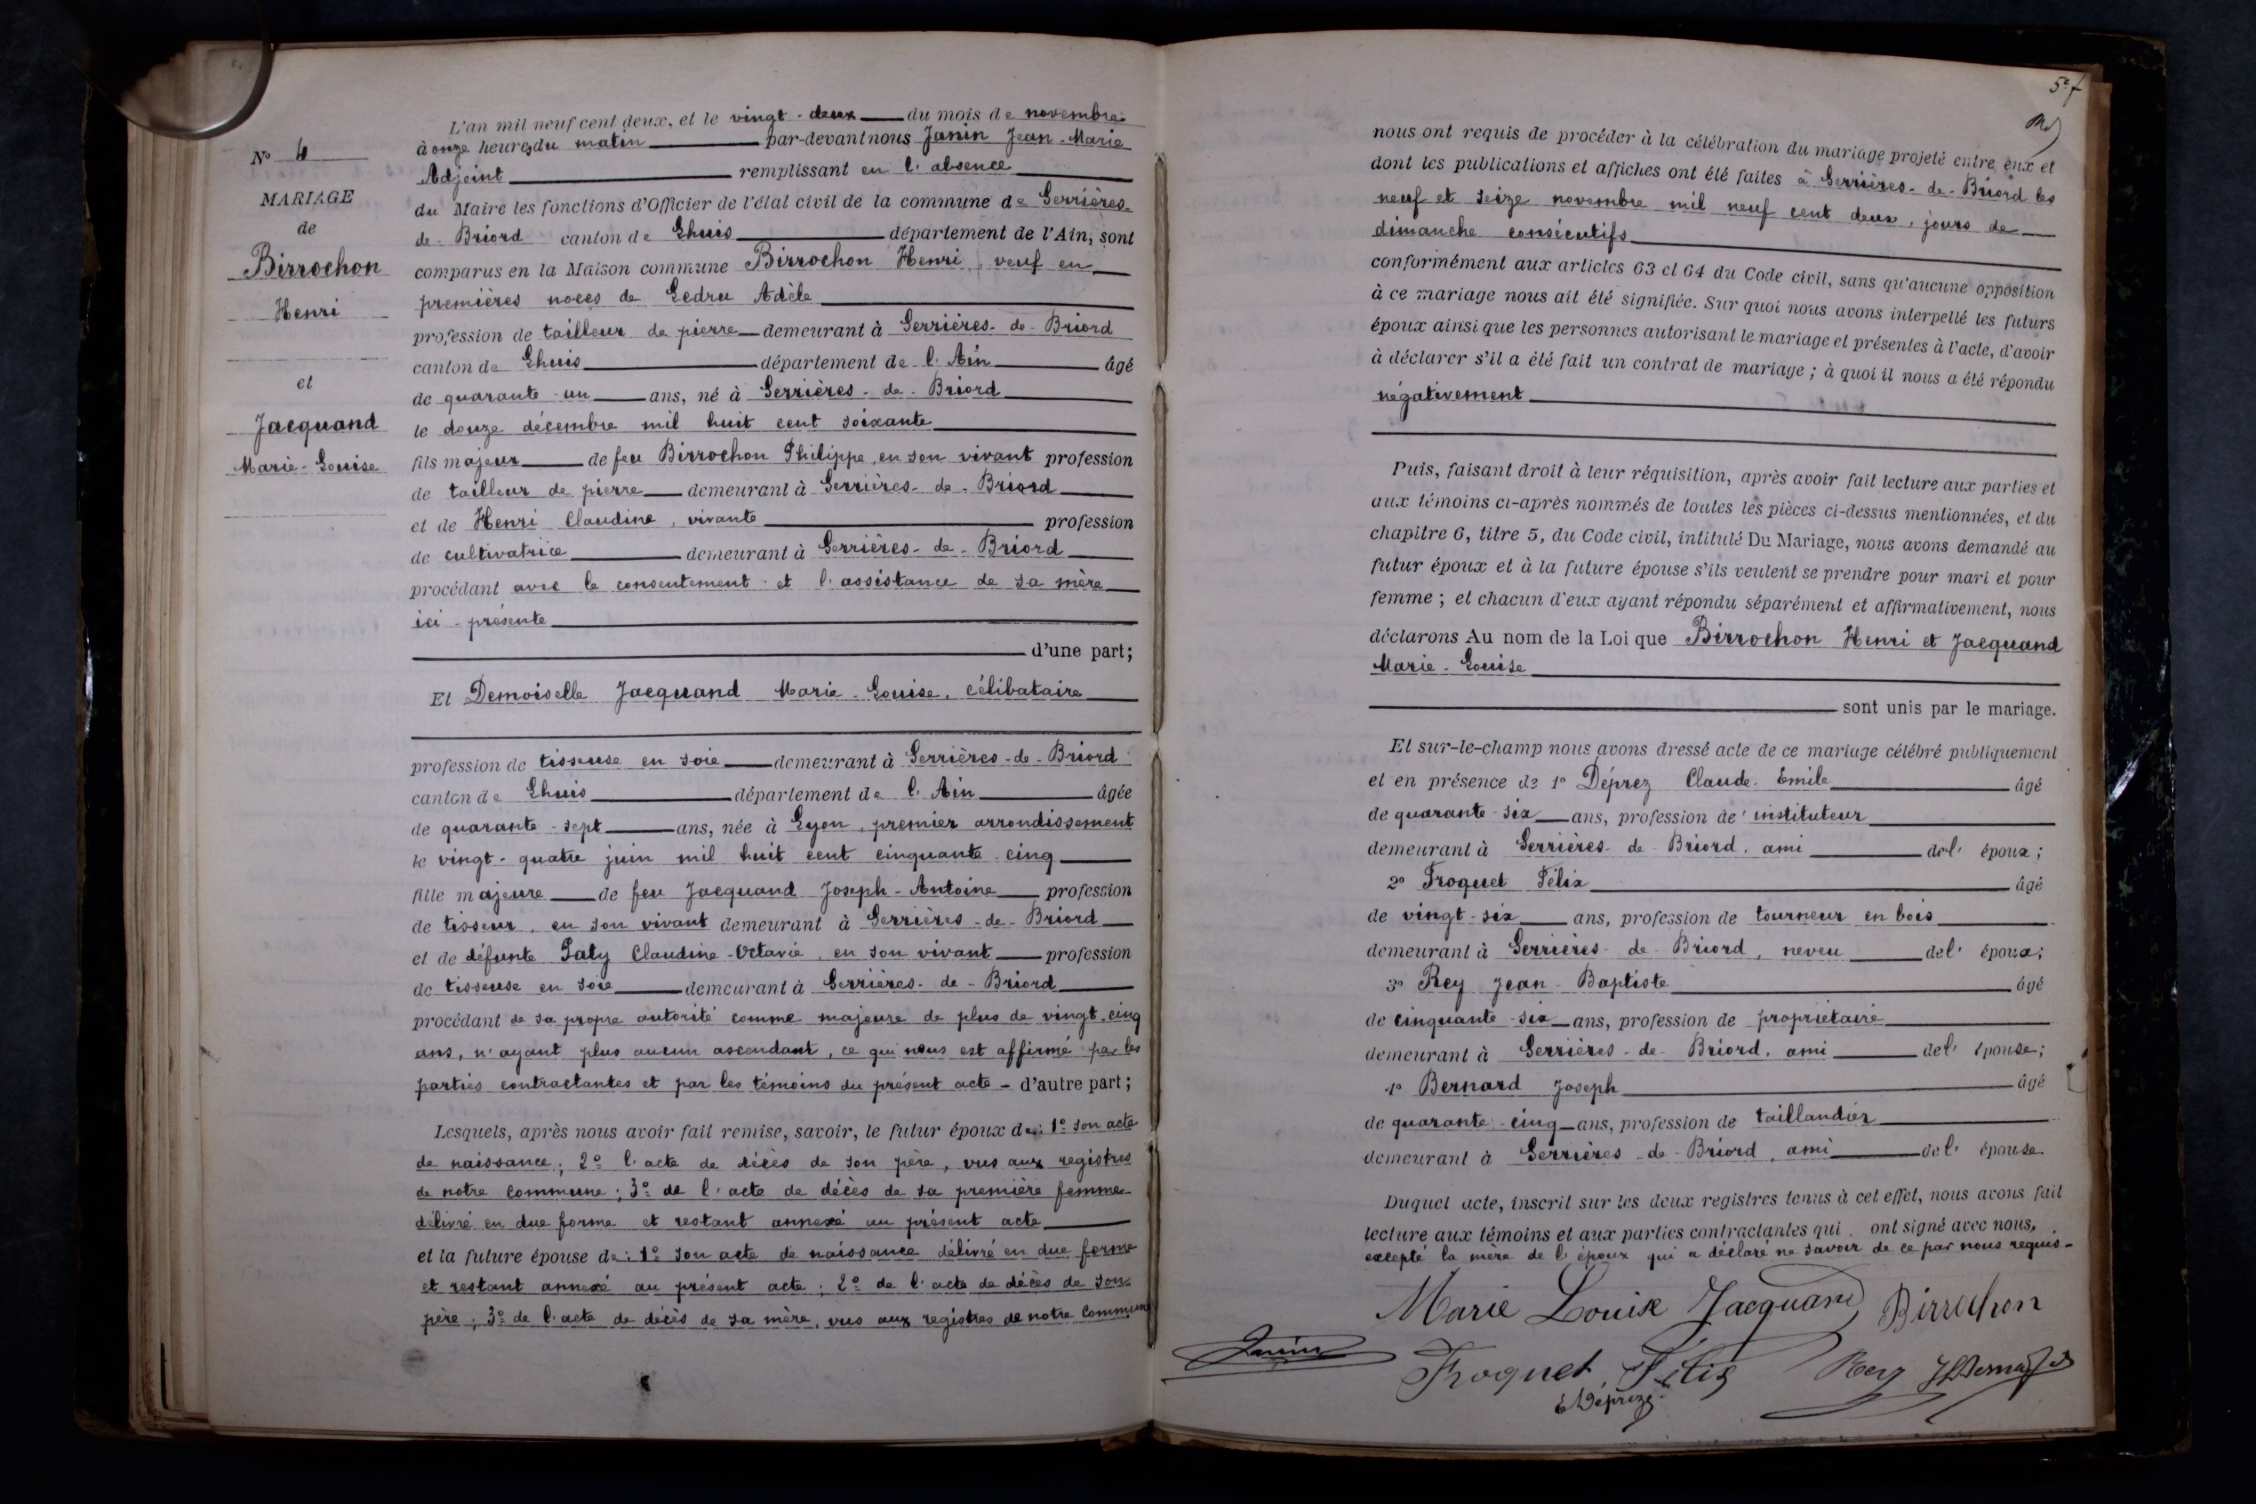 L'an mil neuf cent deux, et le vingt-deux du mois de novembre
à onze heures du matin par-devant nous Janin Jean-Marie
Adjoint remplissant en l'absence
du Maire les fonctions d'Officier de l'état civil de la commune de Serrières-
de-Briord canton de Lhuis département de l'Ain, sont
comparus en la Maison commune Birrochon Henri, veuf en
premières noces de Ledru Adèle
profession de tailleur de pierre demeurant à Serrières-de-Briord
canton de Lhuis département de l'Ain âgé
de quarante-un ans, né à Serrières-de-Briord
le douze décembre mil huit cent soixante
fils majeur de feu Birrochon Philippe, en son vivant profession
de tailleur de pierre demeurant à Serrières-de-Briord
et de Henri Claudine, vivante profession
de cultivatrice demeurant à Serrières-de-Briord
procédant avec le consentement et l'assistance de sa mère
ici-présente
d'une part;
Et Demoiselle Jacquand Marie-Louise, célibataire
profession de tisseuse en soie demeurant à Serrières-de-Briord
canton de Lhuis département de l'Ain âgée
de quarante-sept ans, née à Lyon, premier arrondissement
le vingt-quatre juin mil huit cent cinquante-cinq
fille majeure de feu Jacquand Joseph-Antoine profession
de tisseur, en son vivant demeurant à Serrières-de-Briord
et de défunte Paty Claudine-Octavie, en son vivant profession
de tisseuse en soie demeurant à Serrières-de-Briord
procédant de sa propre autorité comme majeure de plus de vingt-cinq
ans, n'ayant plus aucun ascendant, ce qui nous est affirmé par les
parties contractantes et par les témoins du présent acte - d'autre part;
Lesquels, après nous avoir fait remise, savoir, le futur époux de: 1º son acte
de naissance; 2º l'acte de décès de son père, vus aux registres
de notre commune; 3º de l'acte de décès de sa première femme
délivré en due forme et restant annexé au présent acte
et la future épouse de: 1º son acte de naissance délivré en due forme
et restant annexé au présent acte; 2º de l'acte de décès de son
père; 3º de l'acte de décès de sa mère, vus aux registres de notre commune
Nº 4
MARIAGE
de
Birrochon
Henri
et
Jacquand
Marie-Louise
5e f
nous ont requis de procéder à la célébration du mariage projeté entre eux et
dont les publications et affiches ont été faites à Serrières-de-Briord les
neuf et seize novembre mil neuf cent deux, jours de
dimanche consécutifs
conformément aux articles 63 et 64 du Code civil, sans qu'aucune opposition
à ce mariage nous ait été signifiée. Sur quoi nous avons interpellé les futurs
époux ainsi que les personnes autorisant le mariage et présentes à l'acte, d'avoir
à déclarer s'il a été fait un contrat de mariage; à quoi il nous a été répondu
négativement
Puis, faisant droit à leur réquisition, après avoir fait lecture aux parties et
aux témoins ci-après nommés de toutes les pièces ci-dessus mentionnées, et du
chapitre 6, titre 5, du Code civil, intitulé Du Mariage, nous avons demandé au
futur époux et à la future épouse s'ils veulent se prendre pour mari et pour
femme; et chacun d'eux ayant répondu séparément et affirmativement, nous
déclarons Au nom de la Loi que Birrochon Henri et Jacquand
Marie-Louise
sont unis par le mariage.
Et sur-le-champ nous avons dressé acte de ce mariage célébré publiquement
et en présence de 1º Déprez Claude-Emile âgé
de quarante-six ans, profession de instituteur
demeurant à Serrières-de-Briord, ami de l'époux;
2º Troquet Félix âgé
de vingt-six ans, profession de tourneur en bois
demeurant à Serrières-de-Briord, neveu de l'époux;
3º Rey Jean-Baptiste âgé
de cinquante-six ans, profession de propriétaire
demeurant à Serrières-de-Briord, ami de l'épouse;
4º Bernard Joseph âgé
de quarante-cinq ans, profession de taillandier
demeurant à Serrières-de-Briord, ami de l'épouse.
Duquel acte, inscrit sur les deux registres tenus à cet effet, nous avons fait
lecture aux témoins et aux parties contractantes qui ont signé avec nous,
excepté la mère de l'époux qui a déclaré ne savoir de ce par nous requis-
Marie Louise Jacquand Birrochon
Janin
Troquet Félix Rey J Bernard
E Déprez